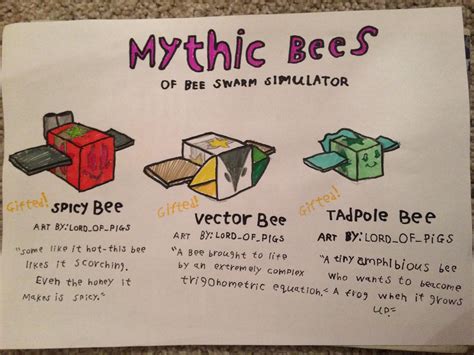 Mythic BEES
OF BEE SWARM SIMULATOR
Gifted!
SPICY BEE
ART BY:LORD_OF_PIGS
"some like it hot-this bee
likes it scorching.
Even the honey it
makes is spicy."
Gifted!
VECTOR BEE
ART BY:LORD_OF_PIGS
"A Bee brought to life
by an extremely complex
trigonometric equation."
Gifted!
TADPOLE BEE
ART BY:LORD_OF_PIGS
"A tiny amphibious bee
who wants to beacome
A frog when it grows
up."